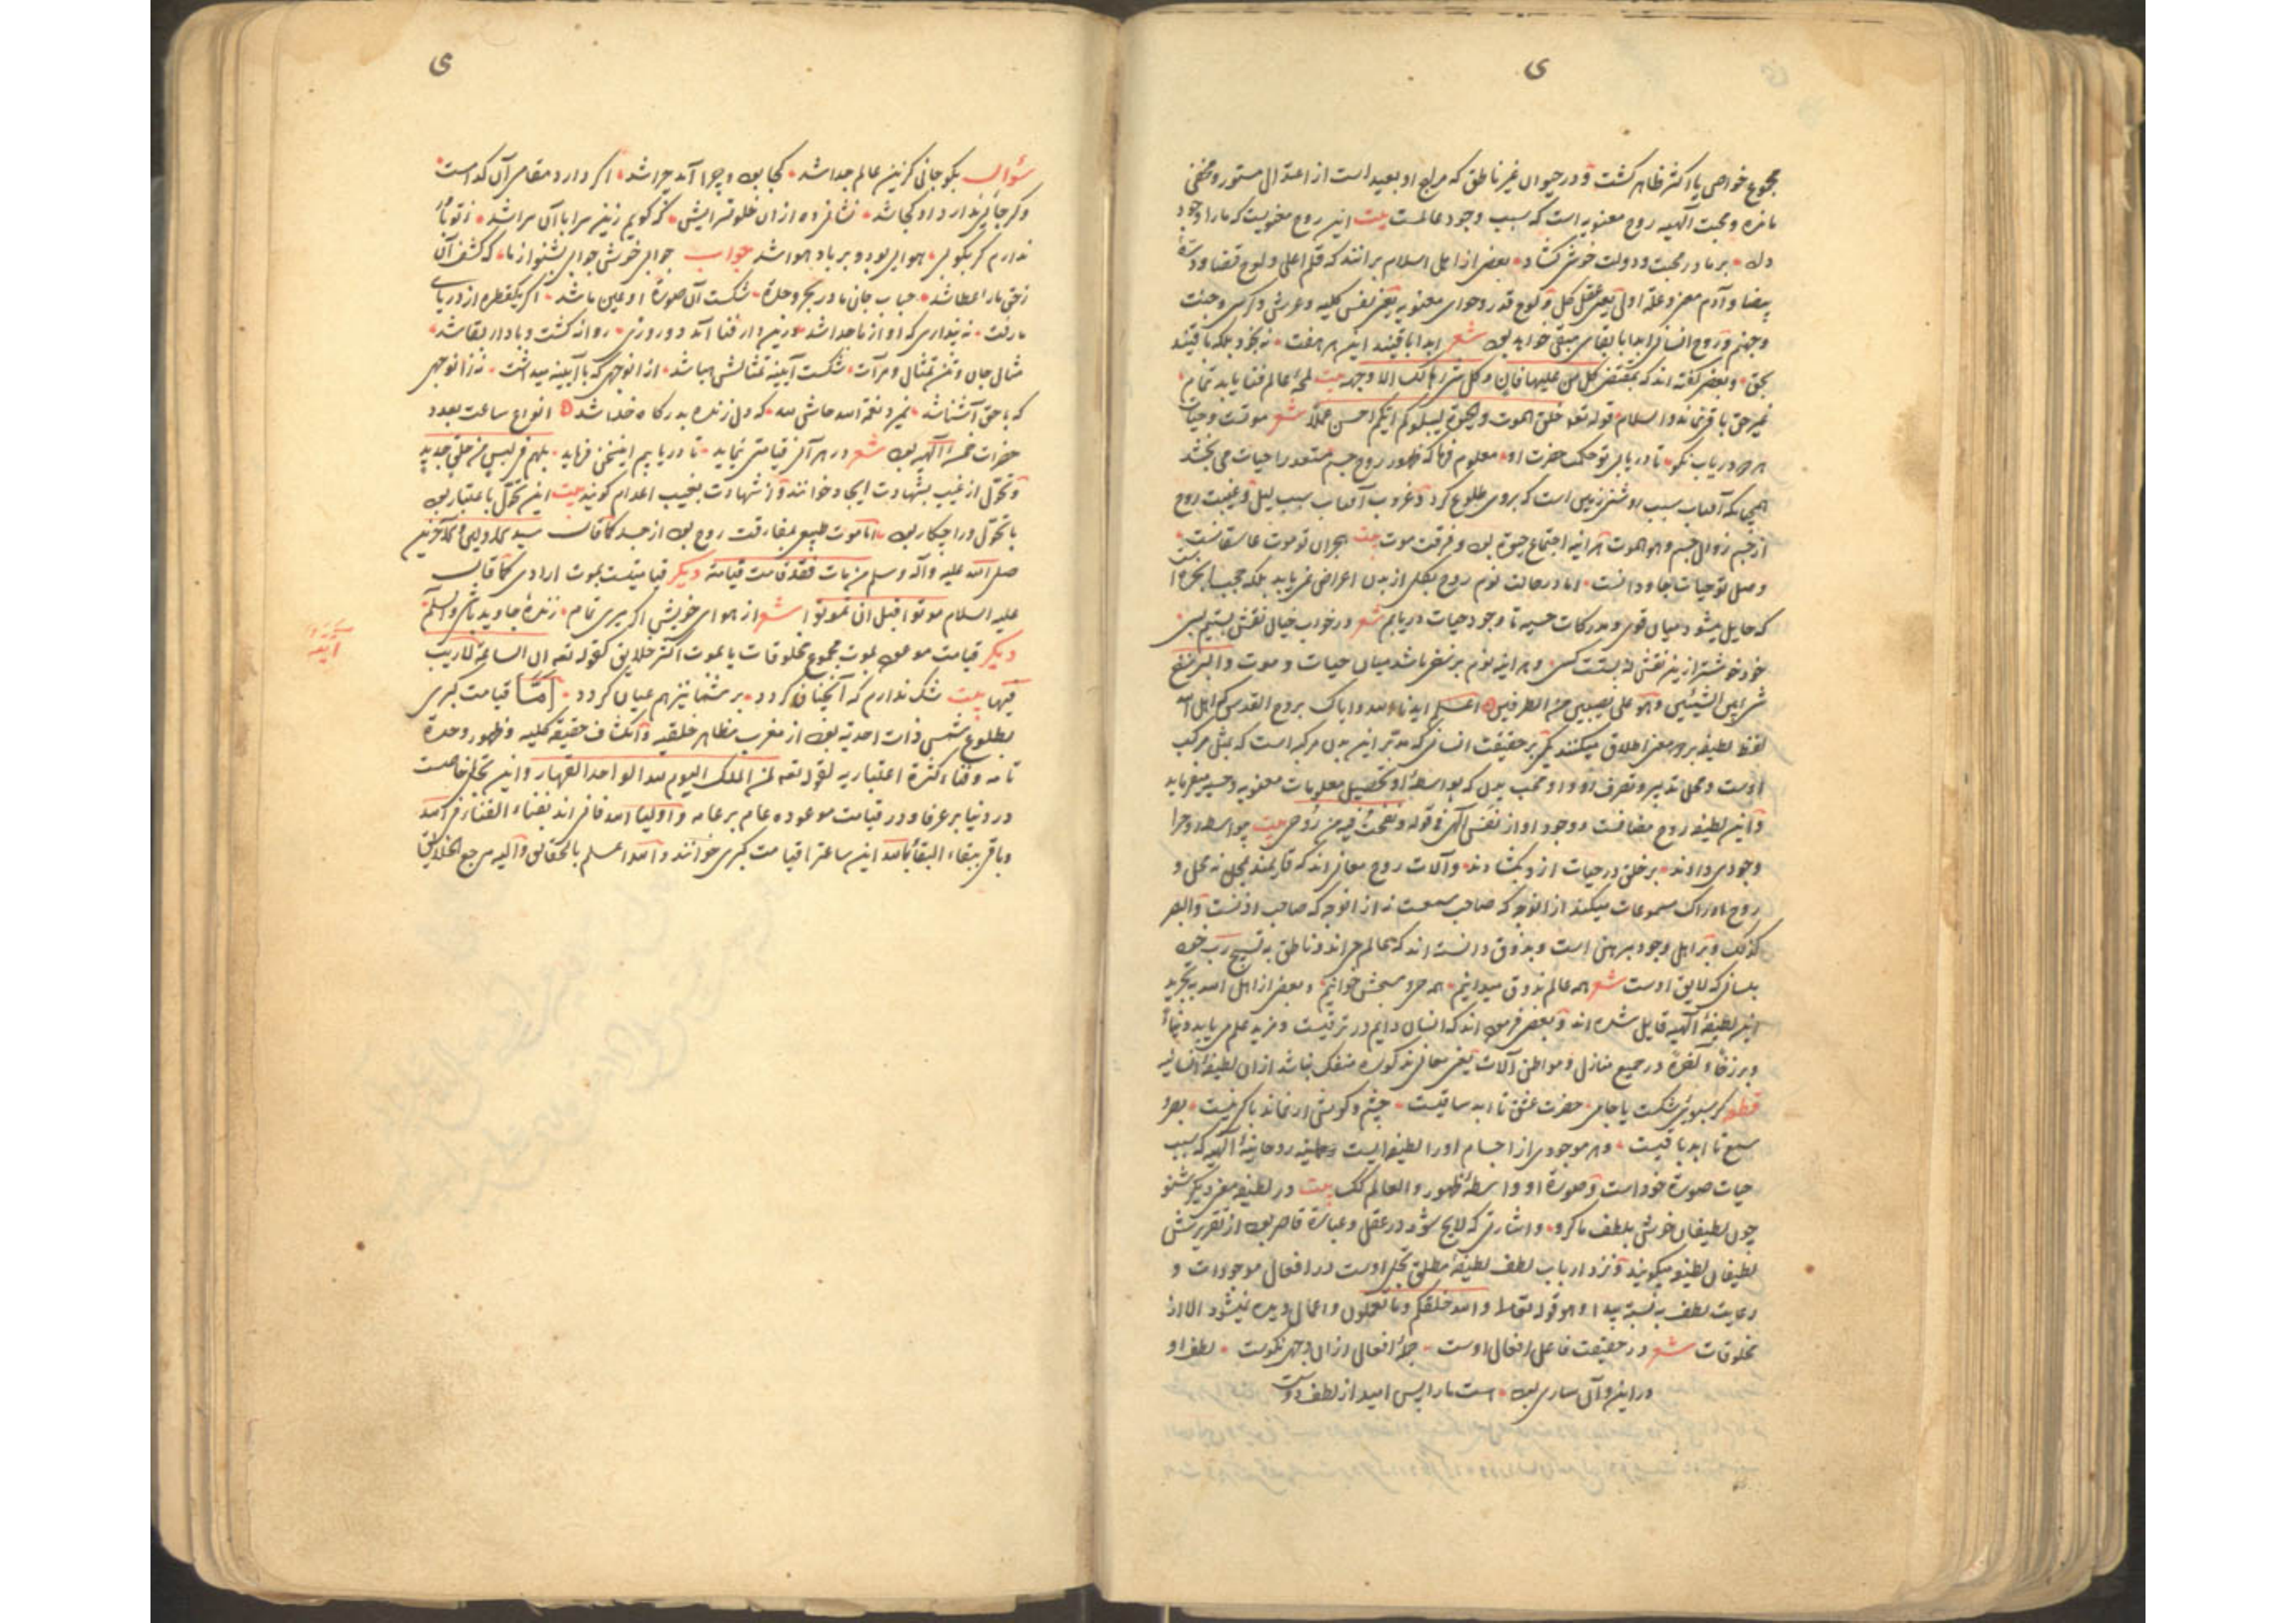 ی
مجموع خواص یا اکثر ظاهر کشت و در حیوان غیر ناطق که مزاج او بعید است از اعتدال مستور و مخفی
مانده و محبت الهیه روح معنویه است که سبب وجود عالمست بیت این روح معنویست که ما را وجود
داد بر ما در محبت و دولت خوش کشاد بعضی از اهل اسلام برانند که قلم اعلی و لوح قضا و درّهٔ
بیضا و آدم معنی و علة اولی یعنی عقل کل و لوح قدر و حوای معنویه یعنی نفس کلیه و عرش و کرسی و جنت
و جهنم و روح انسانی ابدا بابقای مبقی خواهد بود شعر ابدا باقیند این هر هفت نه بخود بلکه باقیند
بحق و بعضی گفته اند که بمقتضی کل من علیها فان و کل شیء هالک الا وجهه بیت لمحهٔ عالم فنا یابد تمام
غیر حق باقی نماند والسلام قوله تعه خلق الموت والحیوة لیبلوکم ایکم احسن عملا شعر موتست و حیات
هر دو دریاب نکو تا دریابی تو حکمت حضرت او معلوم فرما که ظهور روح جسم مستعد را حیات می بخشد
همچنانکه آفتاب سبب روشنی زمین است که بروی طلوع کرد و غروب آفتاب سبب لیل و غیبت روح
از جسم زوال جسم و هو الموت هرآینه اجتماع حیوة بود و فرقت موت بیت هجران تو موت عاشقانست
وصل تو حیات جاودانست اما در حالت نوم روح بکلی از بدن اعراض نمی یابد بلکه حجب ابخره است
که حایل میشود میان قوی و مدرکات حسیه تا وجود حیات دریابیم شعر در خواب خیال نقش بستیم بسی
خود خوشتر ازین نقش نه بستست کسی و هرآینه نوم برزخی باشد میان حیات و موت والبرزخ
شیء بین الشیئین و هو علی نصیبین من الطرفین اعلم ایدنا الله و ایاک بروح القدس که اهل الله
لفظ لطیفه بر دو معنی اطلاق میکنند یکی بر حقیقت انسانی که مدبر این بدن مرکبه است که بمثل مرکب
اوست و محل تدبیر و تصرف او و او محب بدن که بواسطهٔ او تحصیل معلومات معنویه و حسیه میفرماید
و این لطیفه روح مضافست و وجود او از نفس الهی قوله و نفخت فیه من روحی بیت چو اسطه روح را
وجودی دادند بر خلق در حیات ازو بکشادند و آلات روح معانی اند که قایمند بمحل نه محل و
روح ادراک مسموعات میکند از آنوجه که صاحب سمعست نه از آنوجه که صاحب اذنست والبصر
کذلک و بر اهل وجود مبرهن است و بذوق دانسته اند که عالم حی اند و ناطق به تسبیح رب خود
بلسانی که لایق اوست شعر همه عالم بذوق میدانیم همه حی و مسبحش خوانیم و بعضی از اهل الله به تجرید
این لطیفهٔ الهیه قایل شده اند و بعضی فرموده اند که انسان دایم در ترقیست و مزید علم می یابد دنیاءً
و برزخاً و آخرةً در جمیع منازل و مواطن آلات یعنی معانی مذکوره منفک نباشد از آن لطیفهٔ انسانیه
قطعه گر سبوئی شکست یا جامی حضرت عشق تا ابد ساقیست چشم و گوش ار نماند باکی نیست بصر و
سمع تا ابد باقیست و هر موجودی از اجسام او را لطیفهایست و حقیقه روحانیهٔ الهیه که سبب
حیات صورة خود است و صورة او واسطهٔ ظهور والعالم کلک بیت در لطیفه معنی دیگر شنو
چون لطیفان خوش بلطف ما گرو و اشارتی که لایح شود در عقل و عبارة قاصر بود از تقریرش
لطیفان لطیفه میگویند و نزد ارباب لطف لطیفهٔ مطلق تجلی اوست در افعال موجودات و
رعایت لطف به نسبت پیدا و هو قوله تعالی و الله خلقکم و ما تعملون و اعمال دیده نمیشود الا از
مخلوقات شعر در حقیقت فاعل افعال اوست جملهٔ افعال از آن وجهی نکوست لطف او
در این و آن ساری بود هست ما را بس امید از لطف دوست
ی
سؤال بگو جانی کزین عالم جدا شد کجا بود و چرا آمد چرا شد اگر دارد مقامی آن کدامست
وگر جائی ندارد او کجا شد نشانی ده از آن خلوتسرایش نه گویم زین سرا با آن سرا شد
ندارم گر بگویی هوایی بود و بر باد هوا شد جواب جوابی خوش جوابی بشنو از ما که کشف آن
ز حق ما را عطا شد حباب جان ما در بحر وحدة شکست آن صورة او عین ما شد اگر یکقطره از دریای
ما رفت نه پنداری که او از ما جدا شد درین دار فنا آمد دو روزی روانه گشت و با دار بقا شد
مثال جان و تن تمثال و مرآت شکست آیینه تمثالش هبا شد از آنوجهی که با آیینه میداشت نه زآنوجهی
که با حق آشنا شد نمیرد نعمة الله حاش لله که دل زنده بدرگاه خدا شد انواع ساعت بعدد
حضرات خمسهٔ الهیه بود شعر در هر آنی قیامتی نماید تا دریابیم اینچنین فرماید بل هم فی لبس من خلق جدید
و تحول از غیب بشهادت ایجاد خوانند و از شهادت بغیب اعدام گویند بیت این تحول باعتبار بود
با تحول ورا چکار بود اما موت طبیعی مفارقت روح بود از جسد کما قال سید الاولین و الآخرین
صلی الله علیه و آله و سلم من مات فقد قامت قیامته دیگر قیامتست بموت ارادی کما قال
علیه السلام موتوا قبل ان تموتوا شعر از هوای خویش اگر میری تمام زندهٔ جاوید باشی والسلام
دیگر قیامت موعود بموت مجموع مخلوقات یا بموت اکثر خلایق کقوله تعه ان الساعة لآتیة لا ریب
فیها بیت شک ندارم که آنچنان گردد بر شما نیز هم عیان گردد اما قیامت کبری
بطلوع شمس ذات احدیه بود از مغرب مظاهر خلقیه و انکشاف حقیقة کلیه و ظهور وحدة
تامه و فناء کثرة اعتباریه لقوله تعه لمن الملک الیوم لله الواحد القهار و این تجلی خاصست
در دنیا بر عرفا و در قیامت موعوده عام بر عامه و اولیاء الله فانی اند بفناء الفنا فی الله
و باقی ببقاء البقا بالله این ساعة را قیامت کبری خوانند و الله اعلم بالحقایق و الیه مرجع الخلایق